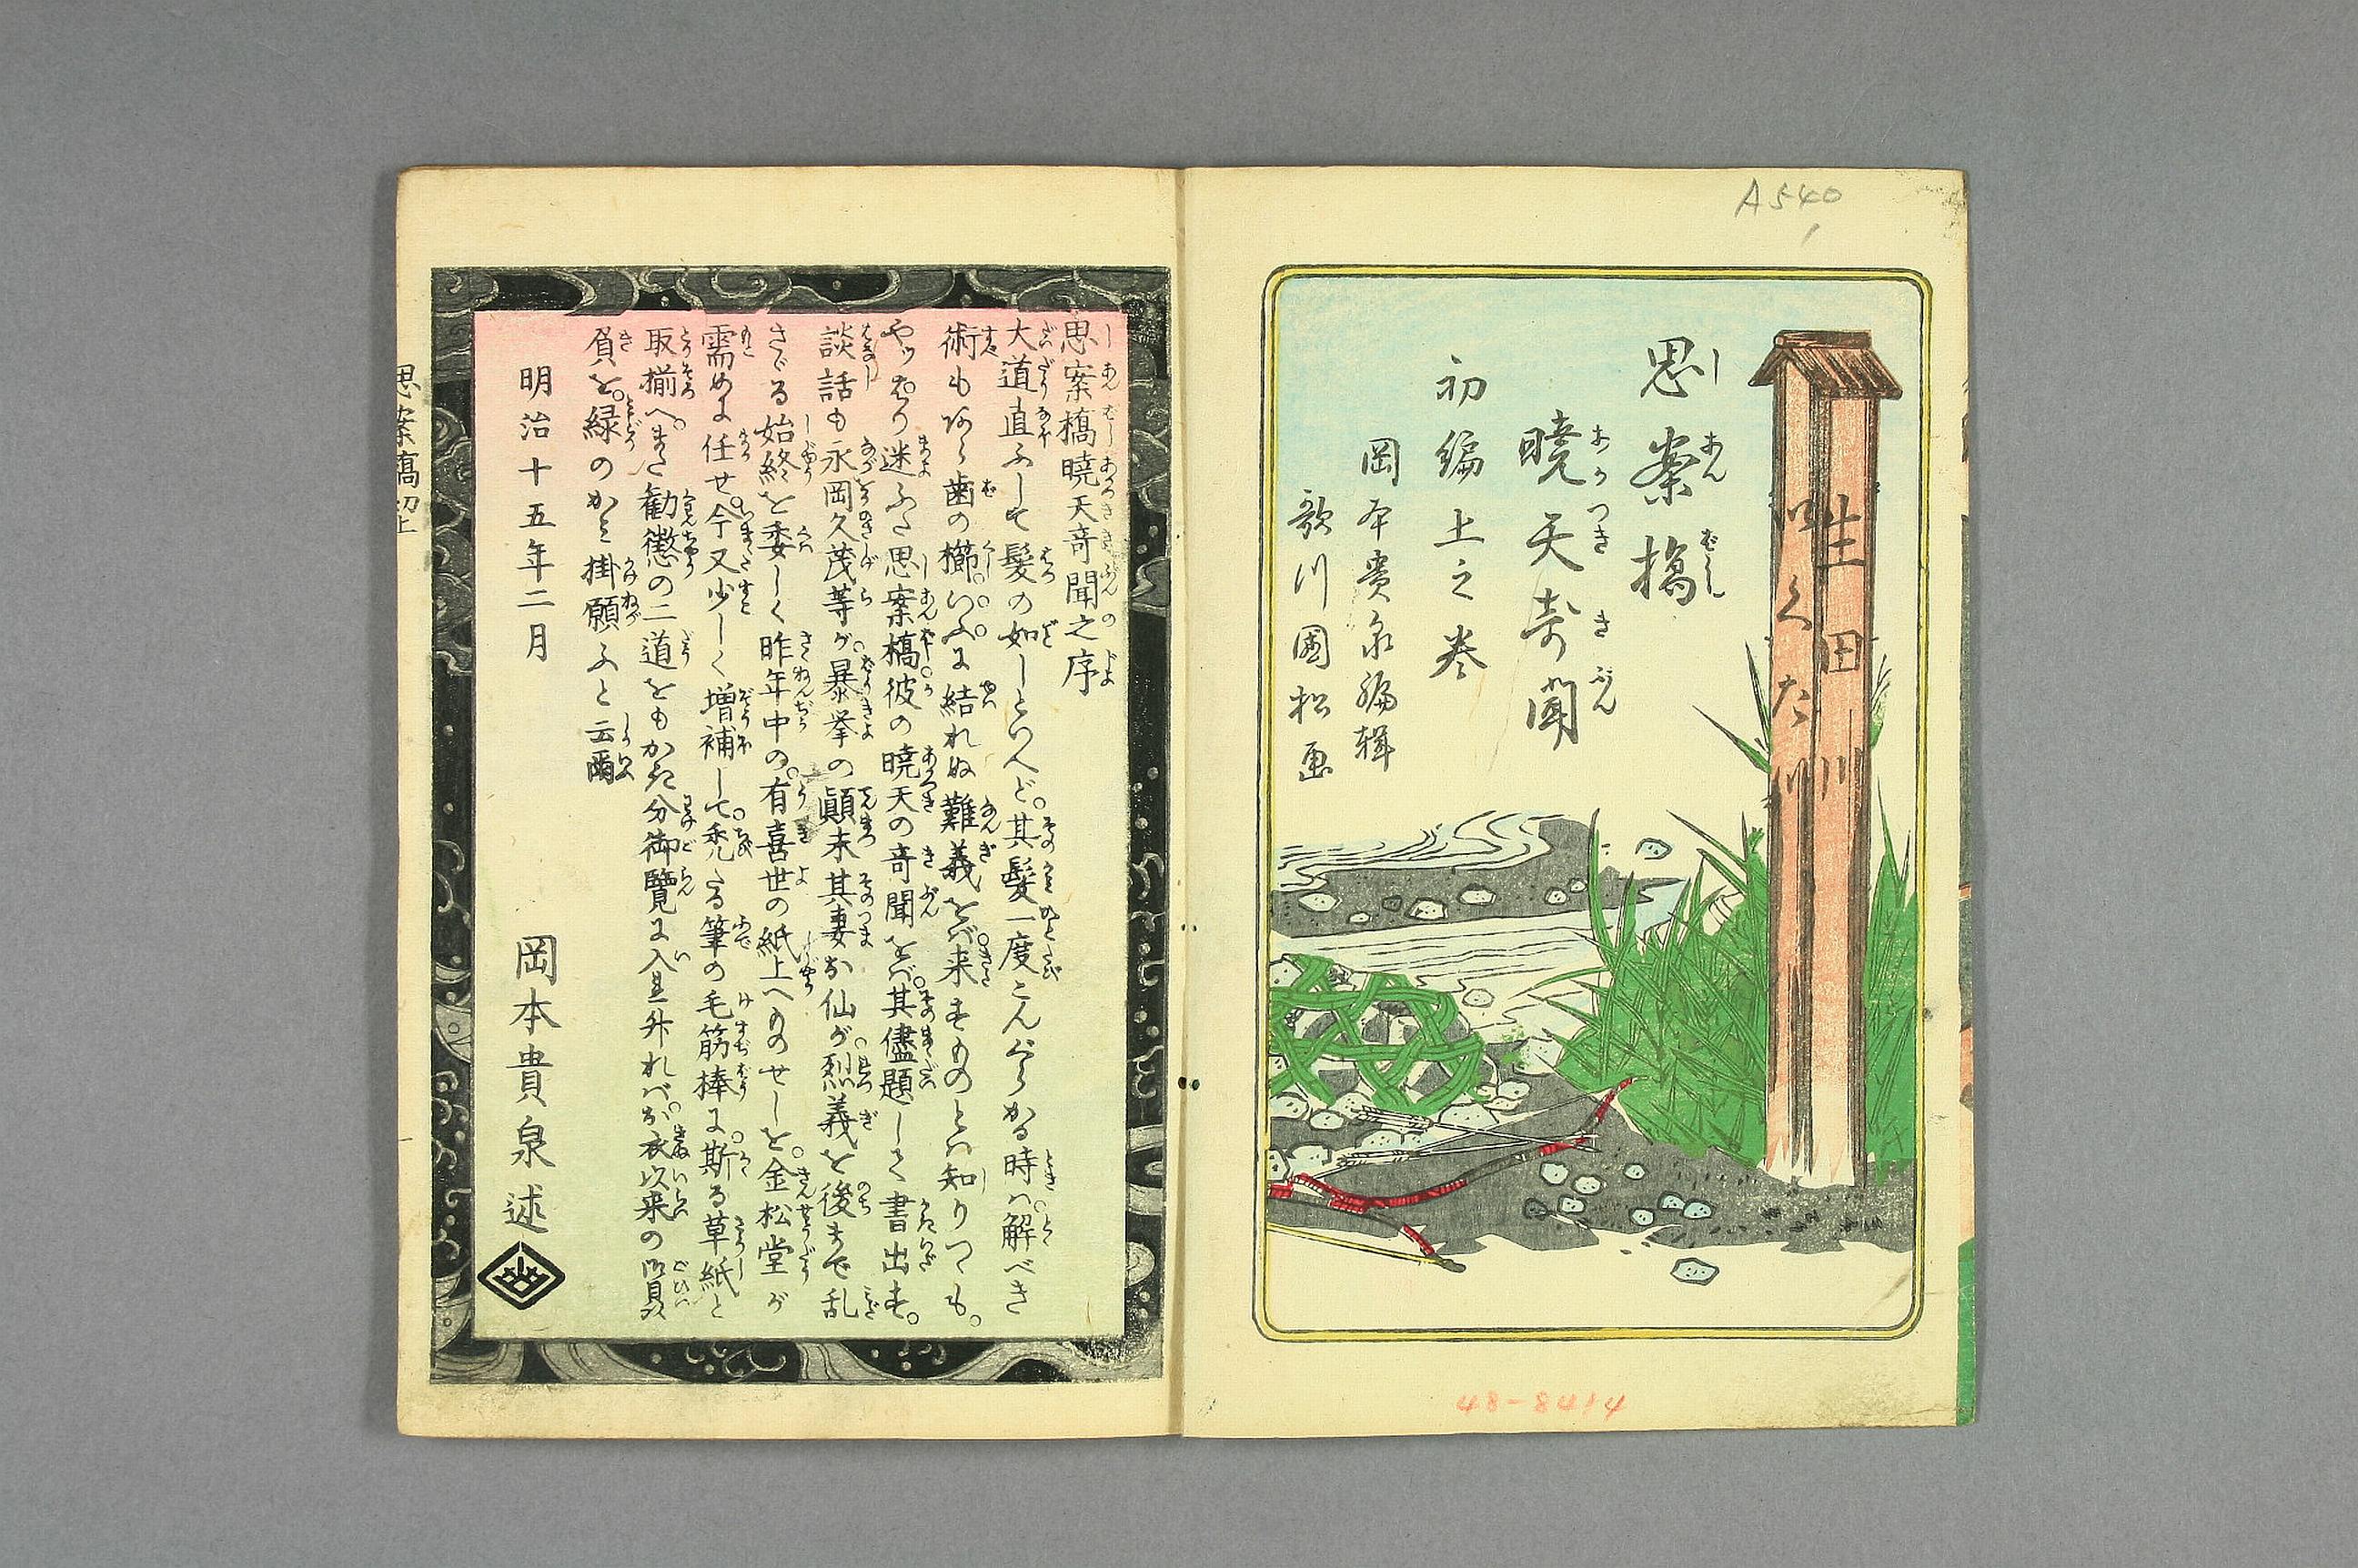 A540
思案橋
暁天奇聞
初編上之巻
岡本貴泉編輯
歌川國松画
生田川
いくた川
48-8414
思案橋暁天竒聞之序
大道直ふして髮の如しといへど。其髮一度こんぐらかる時ハ。解べき
術もあら歯の櫛。いふ。に結れぬ難義をバ。来すものとハ知りつゝも。
やッぱり迷ふた思案橋。彼の暁天の竒聞をバ。其儘題して書出す。
談話も永岡久茂等が。暴挙の顚末其妻お仙が。烈義を後まで乱
さゞる始終を委しく昨年中の。有喜世の紙上へものせしを。金松堂が
需めに任せ。今又少しく増補して。禿たる筆の毛筋棒に。斯る草紙と
取揃へ。また勧懲の二道をもかた分御覽に入升れバ。お求以来の御贔
負を。緑のかみ掛願ふと云爾
明治十五年二月
岡本貴泉述
思案橋初上